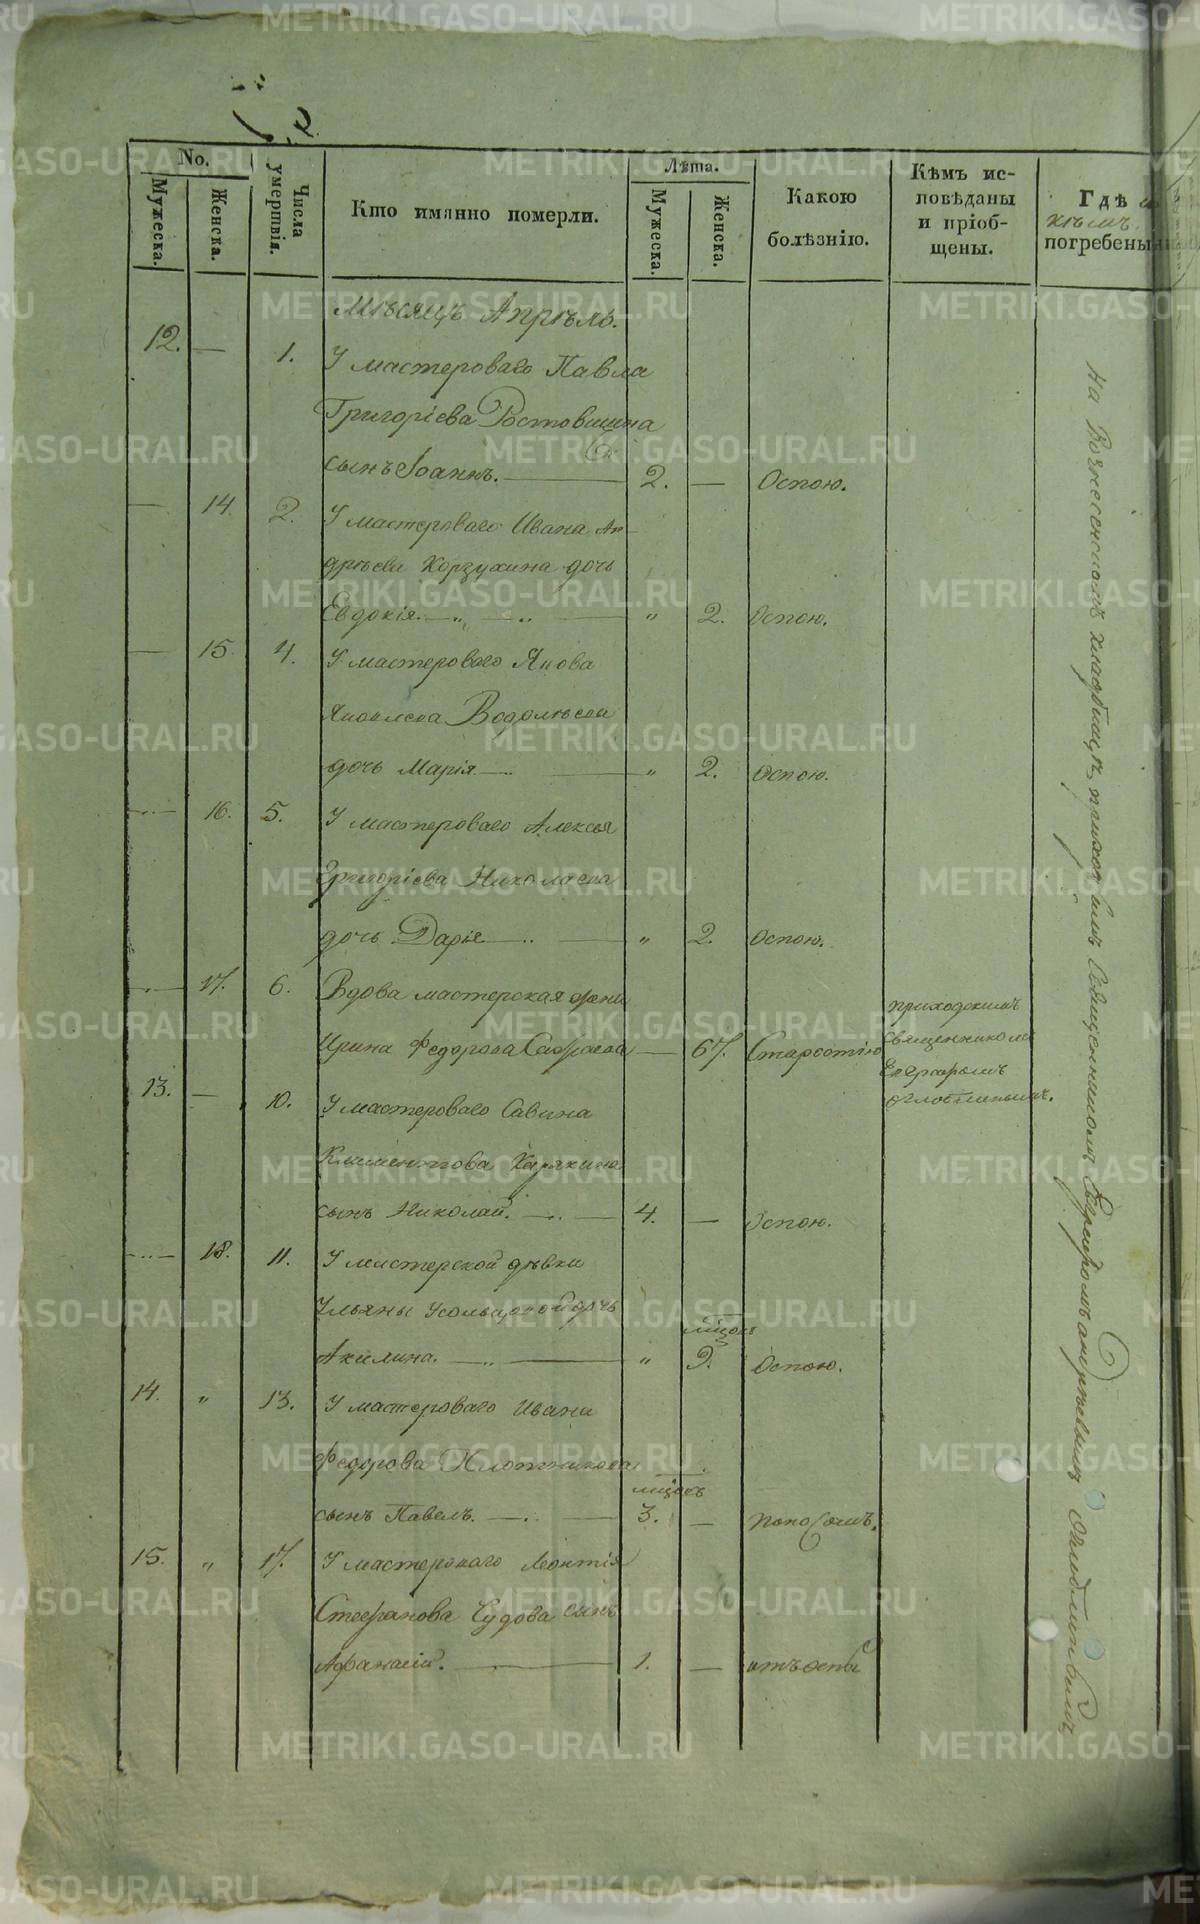 No.
Мужеска.
Женска.
Числа умертвія.
Кто имянно померли.
Лѣта.
Мужеска.
Женска.
Какою болѣзнію.
Кѣмъ исповѣданы и пріобщены.
Гдѣ и кѣмъ погребены
Мѣсяцъ Апрѣль.
12. — 1. У мастероваго Павла
Григоріева Ростовщина
сынъ Іоаннъ. — 2. — Оспою.
— 14. 2. У мастероваго Ивана Ан-
дрѣева Корзухина дочь
Евдокія. — „ 2. Оспою.
— 15. 4. У мастероваго Якова
Яковлева
дочь Марія — „ 2. Оспою.
— 16. 5. У мастероваго Алексѣя
Григоріева Николаева
дочь Дарія — „ 2. Оспою.
— 17. 6. Вдова мастерская жена
Ирина Федорова — 67. Старостію
приходскимъ
священникомъ
13. — 10. У мастероваго Савина
Климентова Карякина
сынъ Николай. — 4. — Оспою.
— 18. 11. У мастерской дѣвки
Ульяны Усольцовой дочь
Акилина. — „ 9. Оспою.
14. „ 13. У мастероваго Ивана
Федорова Плотникова
сынъ Павелъ. — 3. — поносомъ.
15. „ 17. У мастероваго Леонтія
Стефанова Чудова сынъ
Афанасій. — 1. — отъ оспы
На Вознесенскомъ кладбищѣ, приходскимъ Священникомъ
METRIKI.GASO-URAL.RU